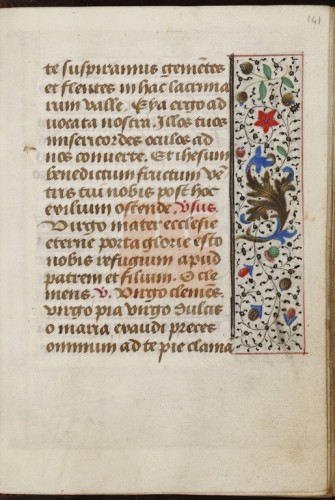 141
te suspiramus gemẽtes
et flentes in hac lacrima
rum valle. Eya ergo ad
uocata nostra. Illos tuos
misericordes oculos ad
nos conuerte. Et ihesum
benedictum fructum vẽ
tris tui nobis post hoc
exilium ostende. vsus.
Virgo mater ecclesie
eterne porta glorie esto
nobis refugium apud
patrem et filium. O cle
mens. v. Virgo clemẽs.
virgo pia virgo dulcis
o maria exaudi preces
omnium ad te pie clama